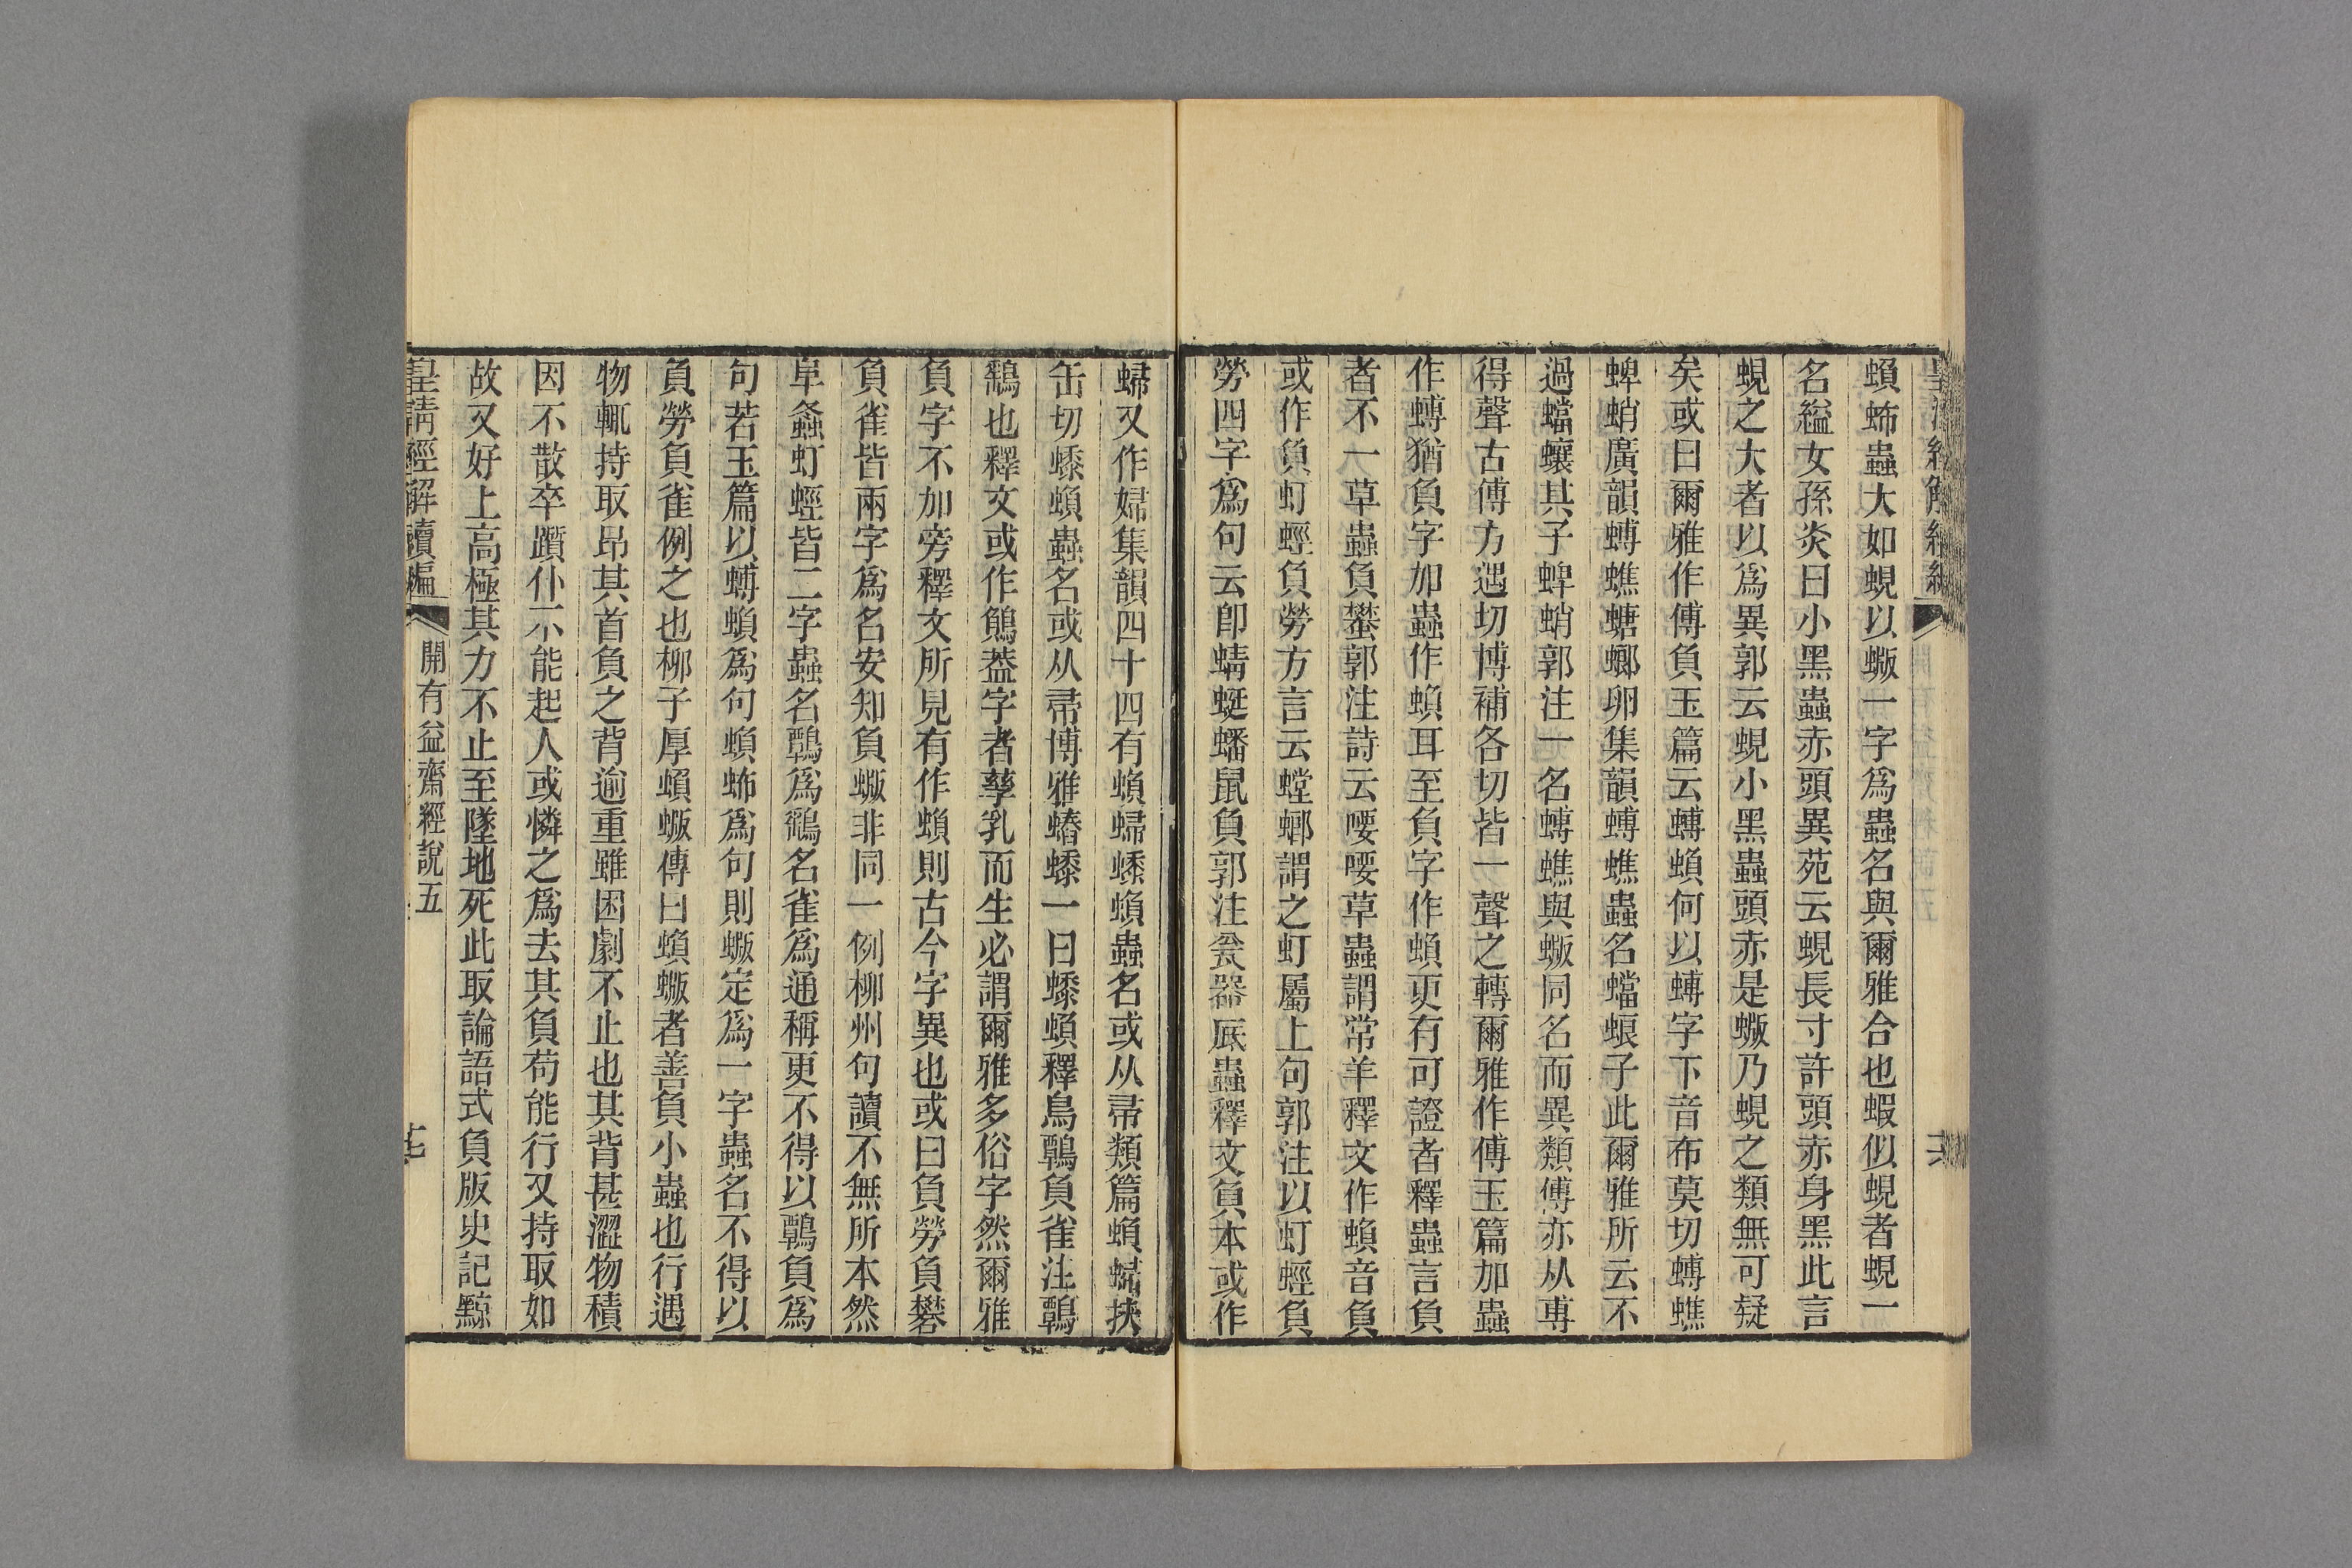 蝜䖩蟲大如蜆以蝂一字爲蟲名與爾雅合也蝦似蜆者蜆一
名縊女孫炎曰小黑蟲赤頭異苑云蜆長寸許頭赤身黑此言
蜆之大者以爲異郭云蜆小黑蟲頭赤是蝂乃蜆之類無可疑
矣或曰爾雅作傅負玉篇云䗚蝜何以䗚字下音布莫切䗚蟭
蜱蛸廣韻䗚蟭螗螂卵集韻䗚蟭蟲名蟷蜋子此爾雅所云不
過蟷蠰其子蜱蛸郭注一名䗚蟭與蝂同名而異類傅亦从尃
得聲古傅方遇切博補各切皆一聲之轉爾雅作傅玉篇加蟲
作䗚猶負字加蟲作蝜耳至負字作蝜更有可證者釋蟲言負
者不一草蟲負蠜郭注詩云喓喓草蟲謂常羊釋文作蝜音負
或作負虰蛵負勞方言云螳螂謂之虰屬上句郭注以虰蛵負
勞四字爲句云卽蜻蜓蟠鼠負郭注瓮器底蟲釋文負本或作
蝜又作婦集韻四十四有蝜䗣䗜蝜蟲名或从帚類篇蝜䗣扶
缶切䗜蝜蟲名或从帚博雅蟠䗜一曰䗜蝜釋鳥鷣負雀注鷣
鷂也釋文或作鵃葢字者孳乳而生必謂爾雅多俗字然爾雅
負字不加旁釋文所見有作蝜則古今字異也或曰負勞負礬
負雀皆兩字爲名安知負蝂非同一例柳州句讀不無所本然
阜螽虰蛵皆二字蟲名鷣爲鷂名雀爲通稱更不得以鷣負爲
句若玉篇以䗚蝜爲句蝜䖩爲句則蝂定爲一字蟲名不得以
負勞負雀例之也柳子厚蝜蝂傳曰蝜蝂者善負小蟲也行遇
物輒持取昂其首負之背逾重雖困劇不止也其背甚澀物積
因不散卒躓仆不能起人或憐之爲去其負苟能行又持取如
故又好上高極其力不止至墜地死此取論語式負版史記黥
皇清經解續編
開有益齋經說五
十七